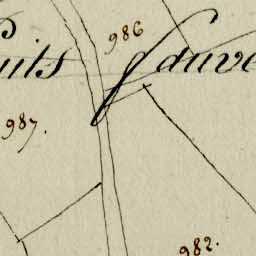 986
uits
987.
982.